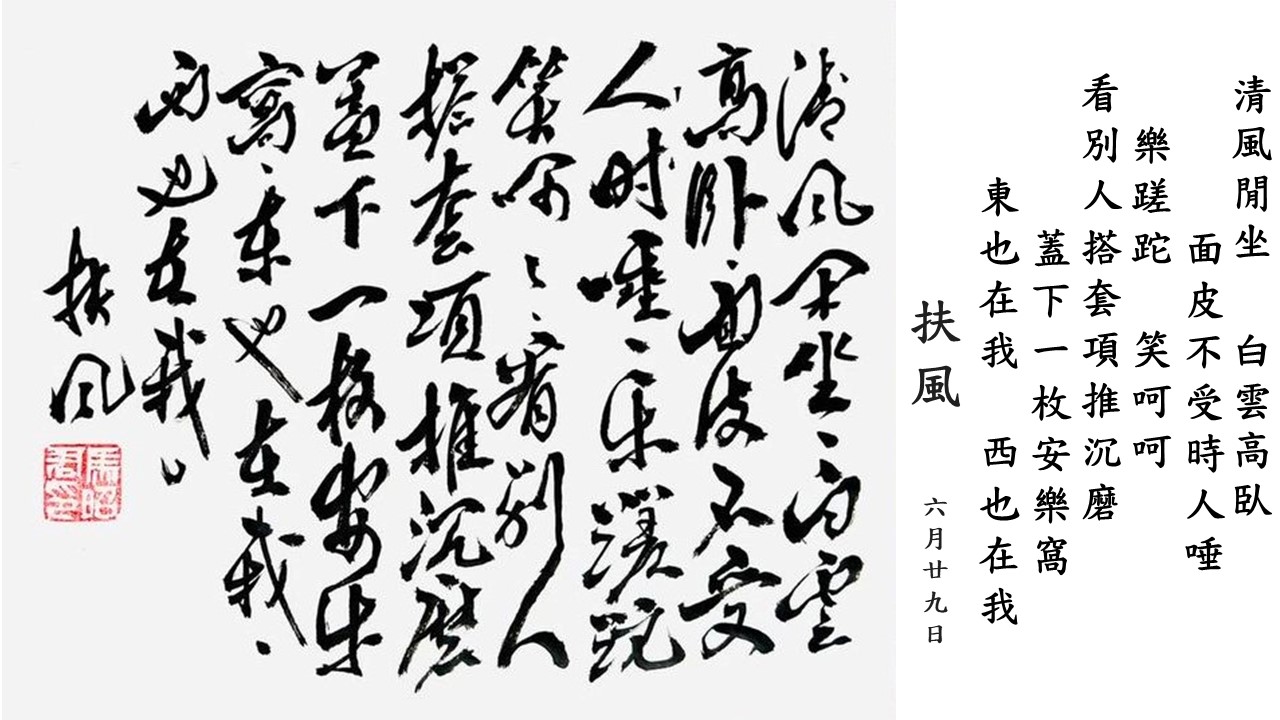 清風閒坐　白雲高臥
面皮不受時人唾
樂蹉跎　笑呵呵
看別人搭套項推沉磨
蓋下一枚安樂窩
東也在我　西也在我
扶風　六月廿九日
清风闲坐、白雲
高卧、面皮不受
人时唾、乐蹉跎
笑呵々、看别人
搭套項推沉磨
盖下一枚安乐
窩、东也在我、
西也在我。
扶风